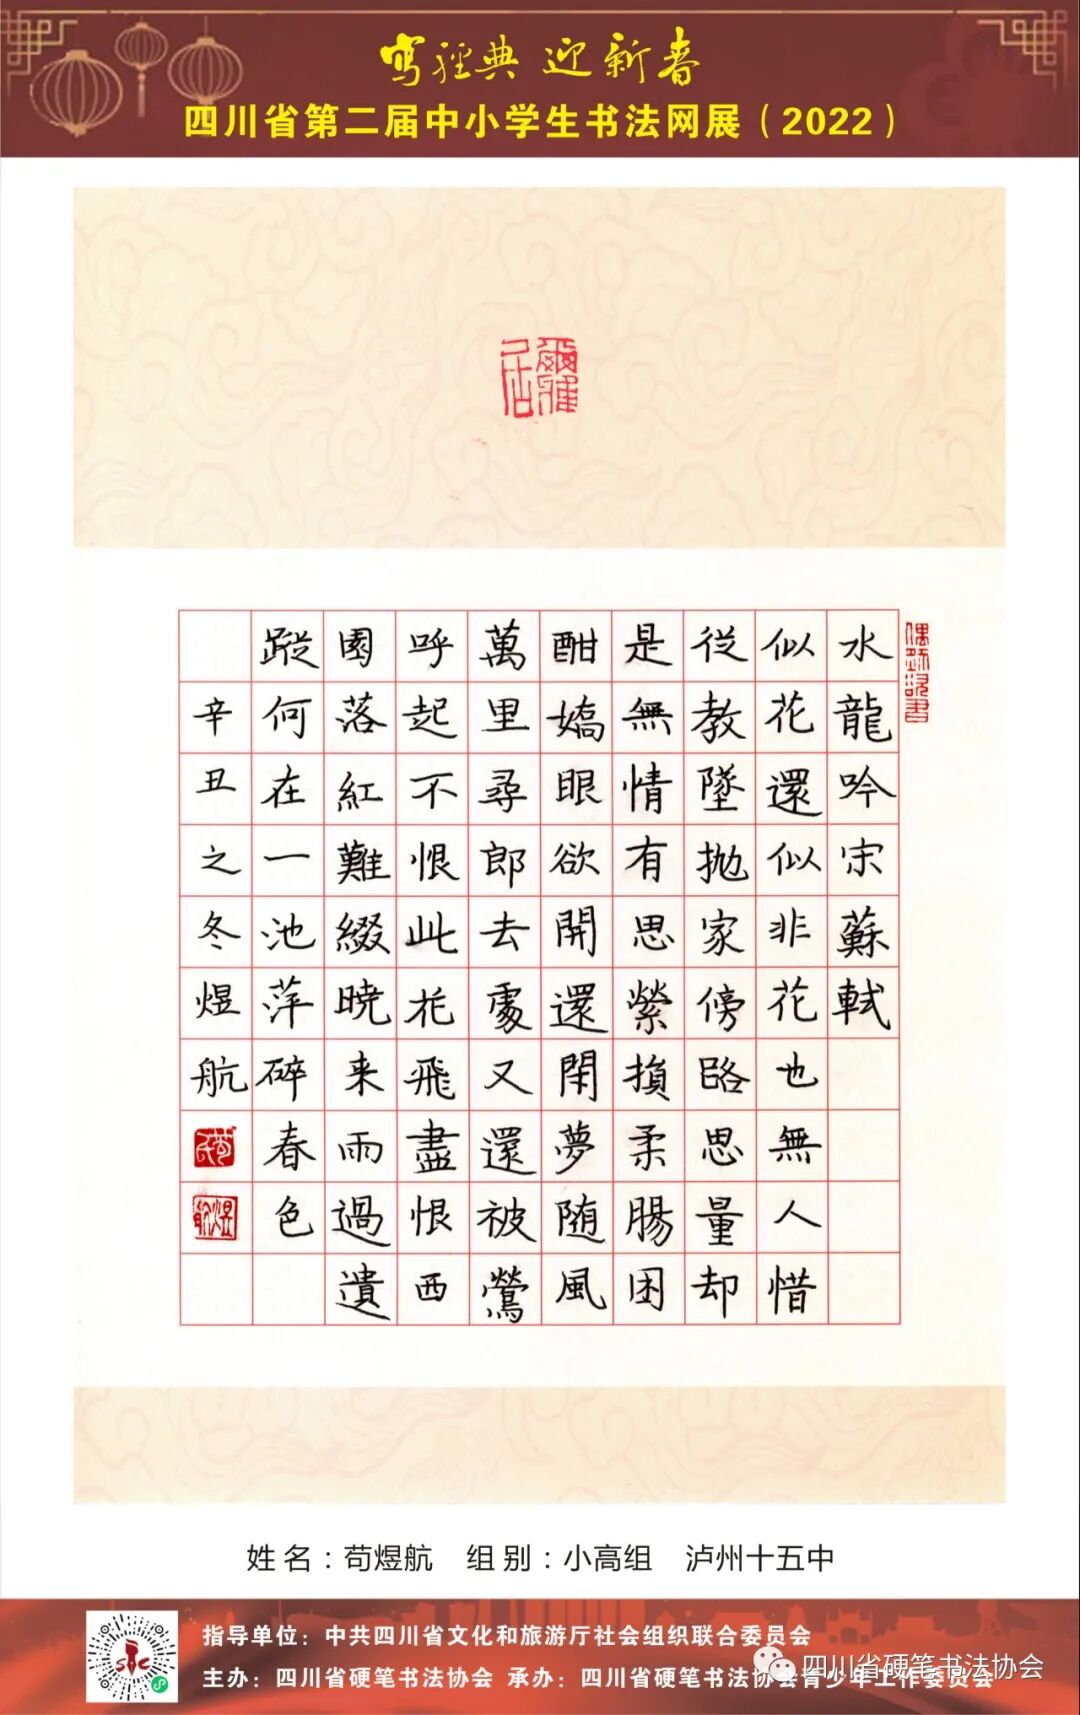 写經典 迎新春
四川省第二届中小学生书法网展（2022）
爾雅居
水龍吟宋蘇軾
似花還似非花也無人惜
從教墜抛家傍路思量却
是無情有思縈損柔腸困
酣嬌眼欲開還閑夢随風
萬里尋郎去處又還被鶯
呼起不恨此花飛盡恨西
園落紅難綴曉来雨過遺
蹤何在一池萍碎春色
辛丑之冬煜航
姓名：苟煜航 组别：小高组 泸州十五中
指导单位：中共四川省文化和旅游厅社会组织联合委员会
主办：四川省硬笔书法协会 承办：四川省硬笔书法协会青少年工作委员会
四川省硬笔书法协会